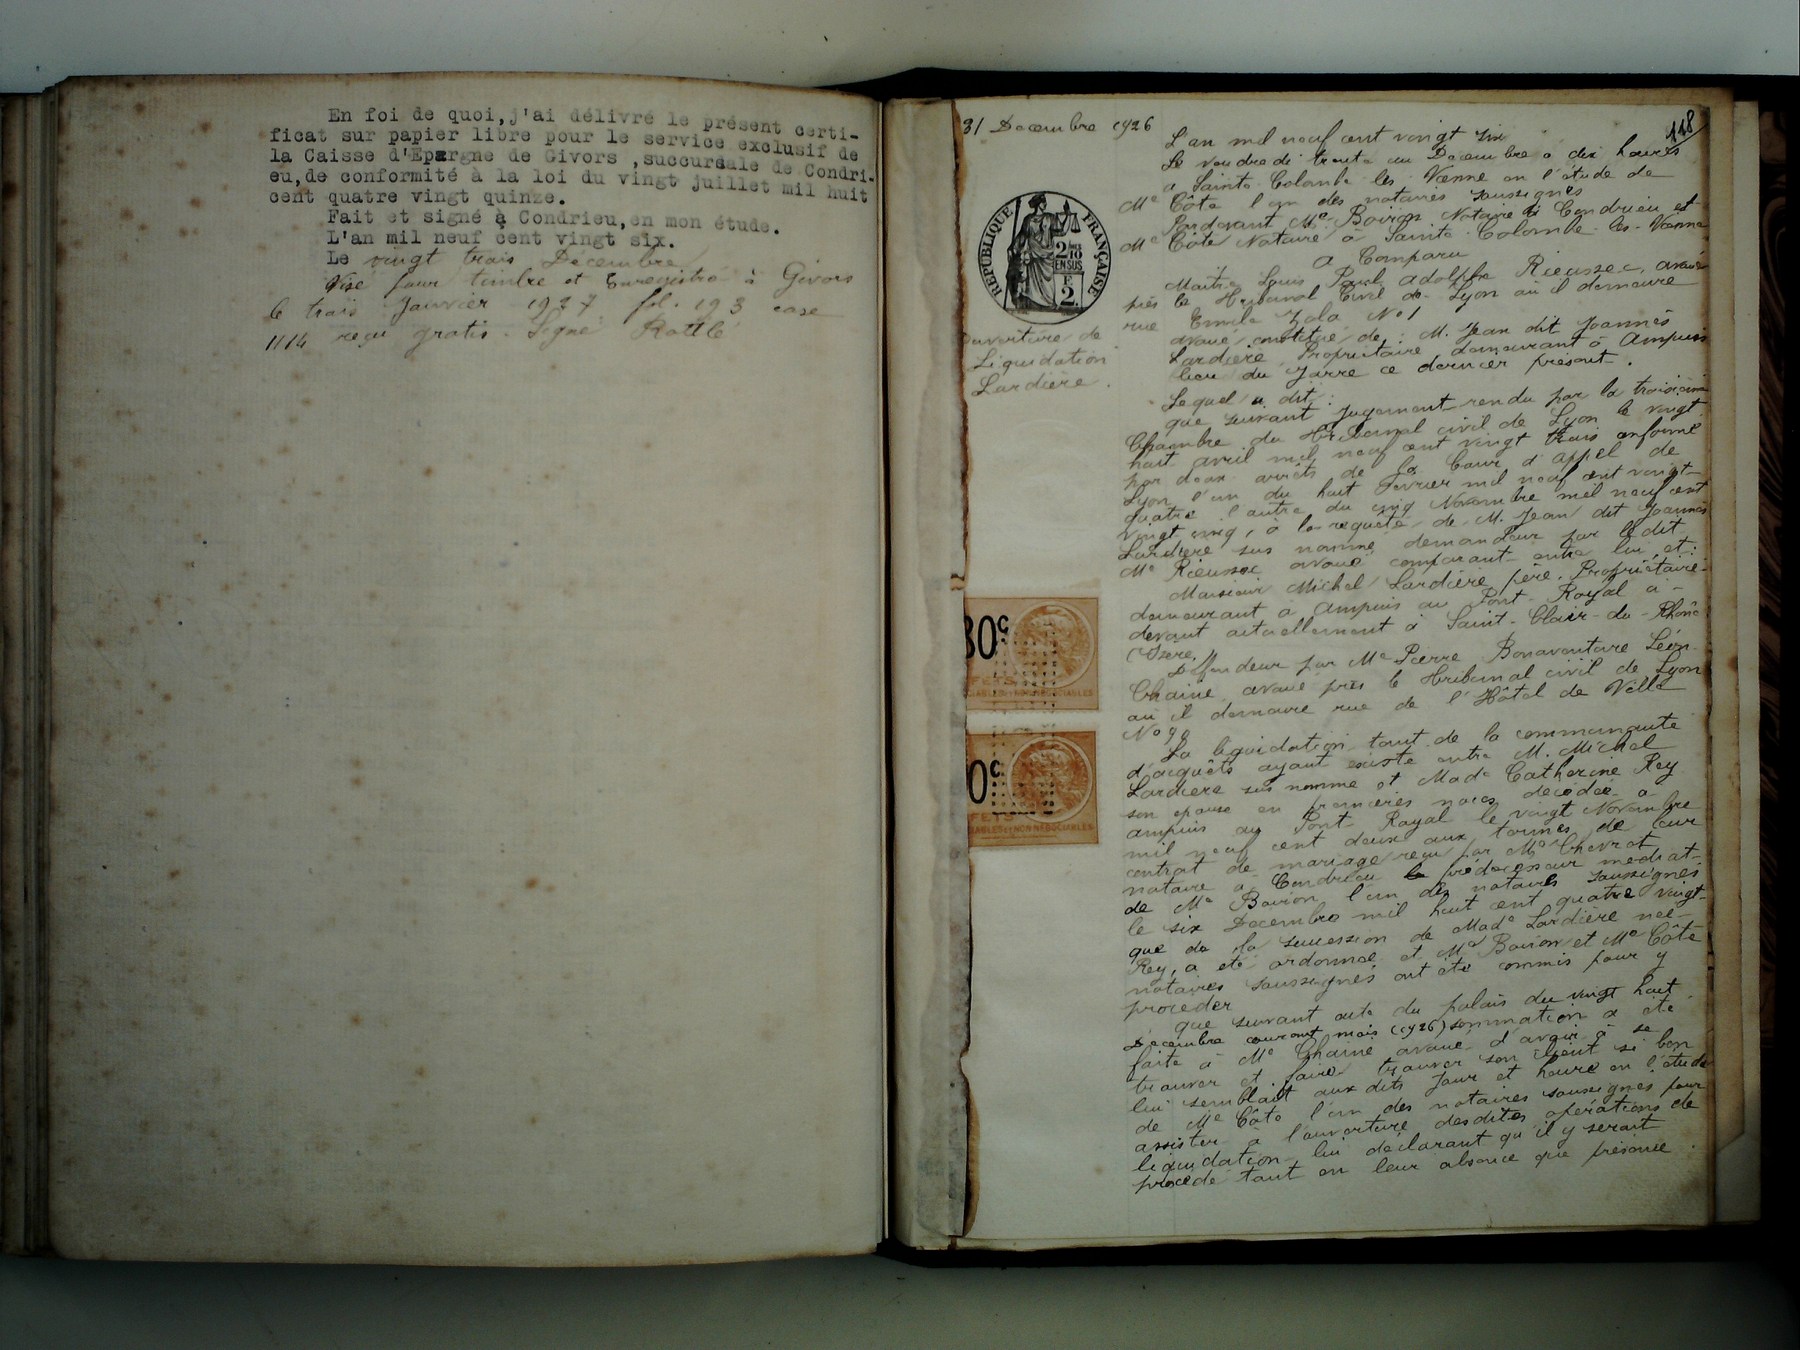 En foi de quoi,j'ai délivré le présent certi-
ficat sur papier libre pour le service exclusif de
la Caisse d'Epargne de Givors ,succursale de Condri-
eu,de conformité à la loi du vingt juillet mil huit
cent quatre vingt quinze.
Fait et signé à Condrieu,en mon étude.
L'an mil neuf cent vingt six.
Le vingt trois Décembre
Visé pour timbre et Enregistré à Givors
le trois Janvier 1927 fol. 193 case
1114 reçu gratis. Signé Rattlé
118
31 Decembre 1926
RÉPUBLIQUE FRANÇAISE
2/10
EN SUS
2F
Ouverture de
Liquidation
Lardière.
80c
0c
L'an mil neuf cent vingt six
Le Vendredi trente un Décembre à dix heures
a Sainte Colombe les Vienne en l'étude de
Me Côte l'un des notaires soussignés
Pardevant Me Boiron Notaire à Condrieu et
Me Côte Notaire à Sainte-Colombe-les-Vienne
a Comparu
Maitre Louis Paul Adolphe Rieussec, avoué
près le Tribunal Civil de Lyon où il demeure
rue Emile Zola No 1
avoué constitué de M. Jean dit Joannès
Lardière, Propriétaire demeurant à Ampuis
lieu du Jarre ce dernier présent.
Lequel a dit:
que suivant jugement rendu par la troisième
Chambre du Tribunal civil de Lyon le vingt
huit avril mil neuf cent vingt trois confirmé
par deux arrêts de la Cour d'Appel de
Lyon l'un du huit Février mil neuf cent vingt-
quatre l'autre du cinq Novembre mil neuf cent
vingt cinq, à la requête de M. Jean dit Joannès
Lardière sus nommé, demandeur par le dit
Me Rieussec avoué comparant entre lui et:
Monsieur Michel Lardière père, Propriétaire
demeurant à Ampuis au Port-Royal ci-
devant actuellement à Saint-Clair-du-Rhône
(Isère.)
Défendeur par Me Pierre Bonaventure Léon
Chaine avoué près le Tribunal civil de Lyon
où il demeure rue de l'Hôtel de Ville
No 98
La liquidation tant de la communauté
d'acquêts ayant existé entre M. Michel
Lardière sus nommé et Made Catherine Rey
son epouse en premières noces, décédée à
Ampuis au Port-Royal le vingt Novembre
mil neuf cent deux aux termes de leur
contrat de mariage reçu par Me Chevrot
notaire à Condrieu prédécesseur médiat
de Me Boiron l'un des notaires soussignés
le six Décembre mil huit cent quatre vingt-
que de la succession de Made Lardière née
Rey, a été ordonnée et Me Boiron et Me Côte
notaires soussignés ont été commis pour y
procéder
que suivant acte du palais du vingt huit
Décembre courant mois (1926) sommation a été
faite à Me Chaine avoué d'avoir à se
trouver et faire trouver son client si bon
lui semblait aux dits jour et heure en l'étude
de Me Côte l'un des notaires soussignés pour
assister à l'ouverture desdites opérations de
liquidation lui déclarant qu'il y serait
procédé tant en leur absence que présence